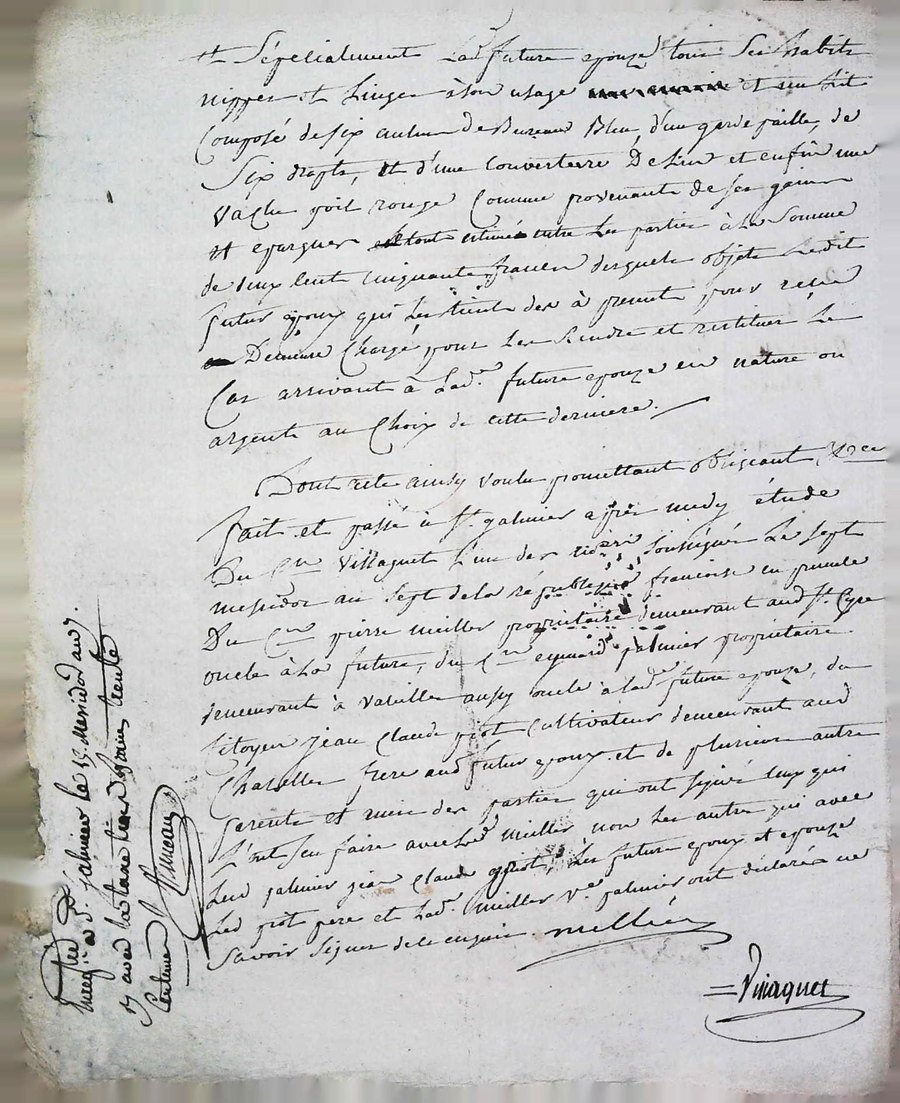 et Spécialement Lad.e future epouze tous Ses habits
nippes et Linges à Son usage et un Lit
Composé de Six aulnes de Bureaux Bleu, d'un garde paille, de
Six drapts, et d'une Couverterre De Lin et enfin une
vache poil rouge Comme provenants de Ses gains
et epargnes le tout estimés entre Les parties à La Somme
de deux Cent Cinquante francs desquels objets Ledit
futur epoux qui Les tient des à present pour reçus
Demeure Chargé pour Les Rendre et restituer Le
Cas arrivant à Lad.e future epouze en nature ou
argents au Choix de cette derniere.
Dont acte ainsy voulu promettant obligeant &ca
fait et passé à St. galmier apres midy étude
Du Cen Villaguet L'un des nores Soussignés Le Sept
messidor an Sept de la république francoise en presence
Du Cen pierre meiller proprietaire demeurant aud. St. Cyre
oncle à La future, du Cen eymard palmier proprietaire
demeurant à Vaville aussy oncle à Lad.e future epouze, du
Citoyen jean Claude piot Cultivateur demeurant aud.
Chazelles frere aud. futur epoux et de plusieurs autres
parents et amis des parties qui ont Signé Ceux qui
L'ont Sçu faire avec Led. meiller, non Les autres qui avec
Led. palmier jean Claude piot, Les future epoux et epouze
Led. piot pere et Lad.e meiller ve. palmier ont déclarés ne
Savoir Signer de Ce enquis. meillier
Vinaguet
à St. galmier le 15. Messidor an 7.
trente
Centimes